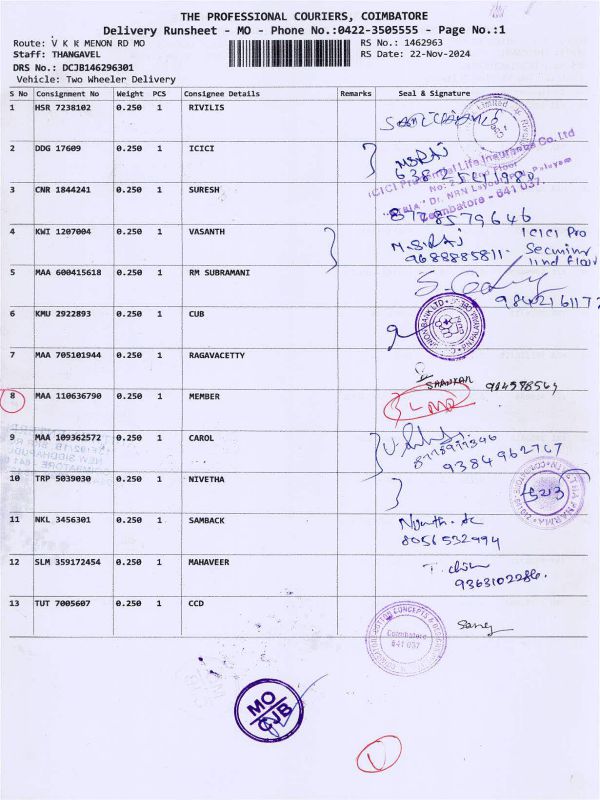 THE PROFESSIONAL COURIERS, COIMBATORE
Delivery Runsheet - MO - Phone No.:0422-3505555 - Page No.:1
Route: V K K MENON RD MO RS No.: 1462963
Staff: THANGAVEL RS Date: 22-Nov-2024
DRS No.: DCJB146296301
Vehicle: Two Wheeler Delivery
S No Consignment No Weight PCS Consignee Details Remarks Seal & Signature
1 HSR 7238102 0.250 1 RIVILIS
2 DDG 17609 0.250 1 ICICI
ICICI Prudential Life Insurance Co. Ltd
Coimbatore - 641 037.
3 CNR 1844241 0.250 1 SURESH
8778579646
4 KWI 1207004 0.250 1 VASANTH
ICICI Pro
9688885811
IInd Floor
5 MAA 600415618 0.250 1 RM SUBRAMANI
6 KMU 2922893 0.250 1 CUB
7 MAA 705101944 0.250 1 RAGAVACETTY
SHANKAR
8 MAA 110636790 0.250 1 MEMBER
9 MAA 109362572 0.250 1 CAROL
9384962767
10 TRP 5039030 0.250 1 NIVETHA
11 NKL 3456301 0.250 1 SAMBACK
8056532994
12 SLM 359172454 0.250 1 MAHAVEER
9363102286.
13 TUT 7005607 0.250 1 CCD
Coimbatore
641 037
MO
CJB